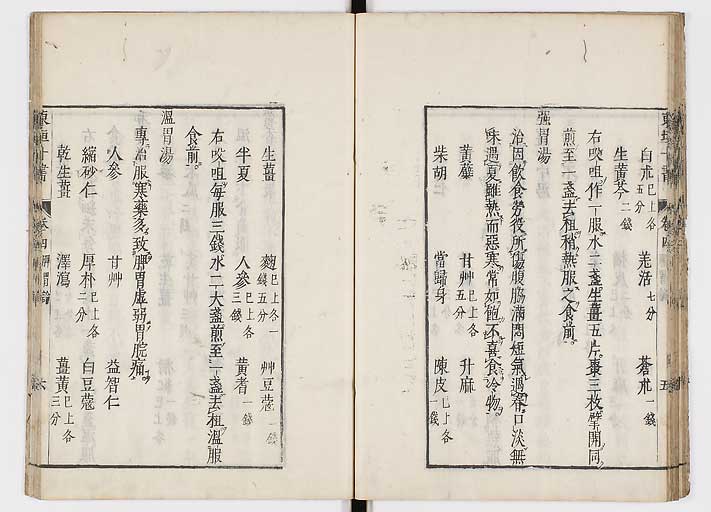 白朮已上各五分 羌活七分 蒼朮一錢
生黃芩二錢
右㕮咀作一服水二盞生薑五片棗三枚擘開同
煎至一盞去柤稍熱服之食前
強胃湯
治因飲食勞役所傷腹脇滿悶短氣遇春口淡無
味遇夏雖熱而惡寒常如飽不喜食冷物
黃蘗 甘艸已上各五分 升麻
柴胡 當歸身 陳皮已上各一錢
生薑 麴已上各一錢五分 艸豆蔻一錢
半夏 人參已上各三錢 黃耆一錢
右㕮咀每服三錢水二大盞煎至一盞去柤溫服
食前
溫胃湯
專治服寒藥多致脾胃虛弱胃脘痛
人參 甘艸 益智仁
縮砂仁 厚朴已上各二分 白豆蔻
乾生薑 澤瀉 薑黃已上各三分